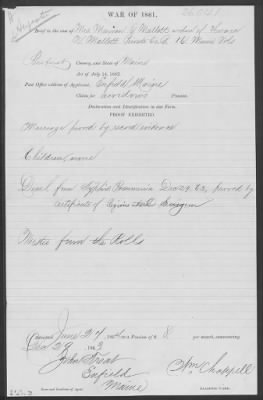 WAR OF 1861.
Brief in the case of Mrs Marian G Mallett widow of
N Mallett Private Co. D. 16 Maine Vols
County, and State of Maine
Act of July 14, 1862.
Post Office address of Applicant. Enfield Maine
Claim for widows Pension.
Declaration and Identification in due Form.
PROOF EXHIBITED.
Marriage proved by record evidence
Children, none
Died from Typhoid Pneumonia Dec 29. 62, proved by
certificate of Surgeon
Muster from the Rolls
Admitted June 27 186 to a Pension of $ 8 per month, commencing
Dec 29 186
John Treat
Enfield
Maine
Wm Chappell
Name and Residence of Agent.
EXAMINING CLERK.